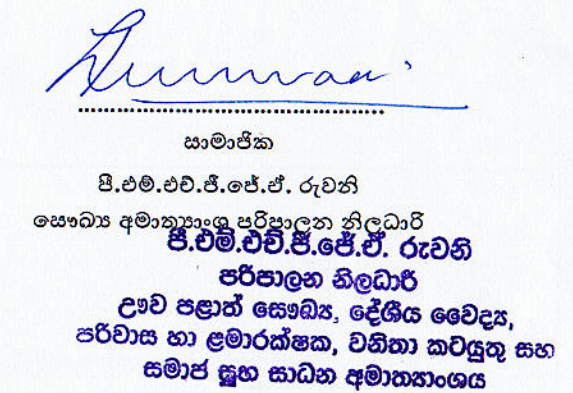 සාමාජික
පී.එම්.එච්.ජී.ජේ.ඒ. රුවනි
සෞඛ්‍ය අමාත්‍යාංශ පරිපාලන නිලධාරි
පී.එම්.එච්.ජී.ජේ.ඒ. රුවනි
පරිපාලන නිලධාරී
ඌව පළාත් සෞඛ්‍ය, දේශීය වෛද්‍ය,
පරිවාස හා ළමාරක්ෂක, වනිතා කටයුතු සහ
සමාජ සුභ සාධන අමාත්‍යාංශය